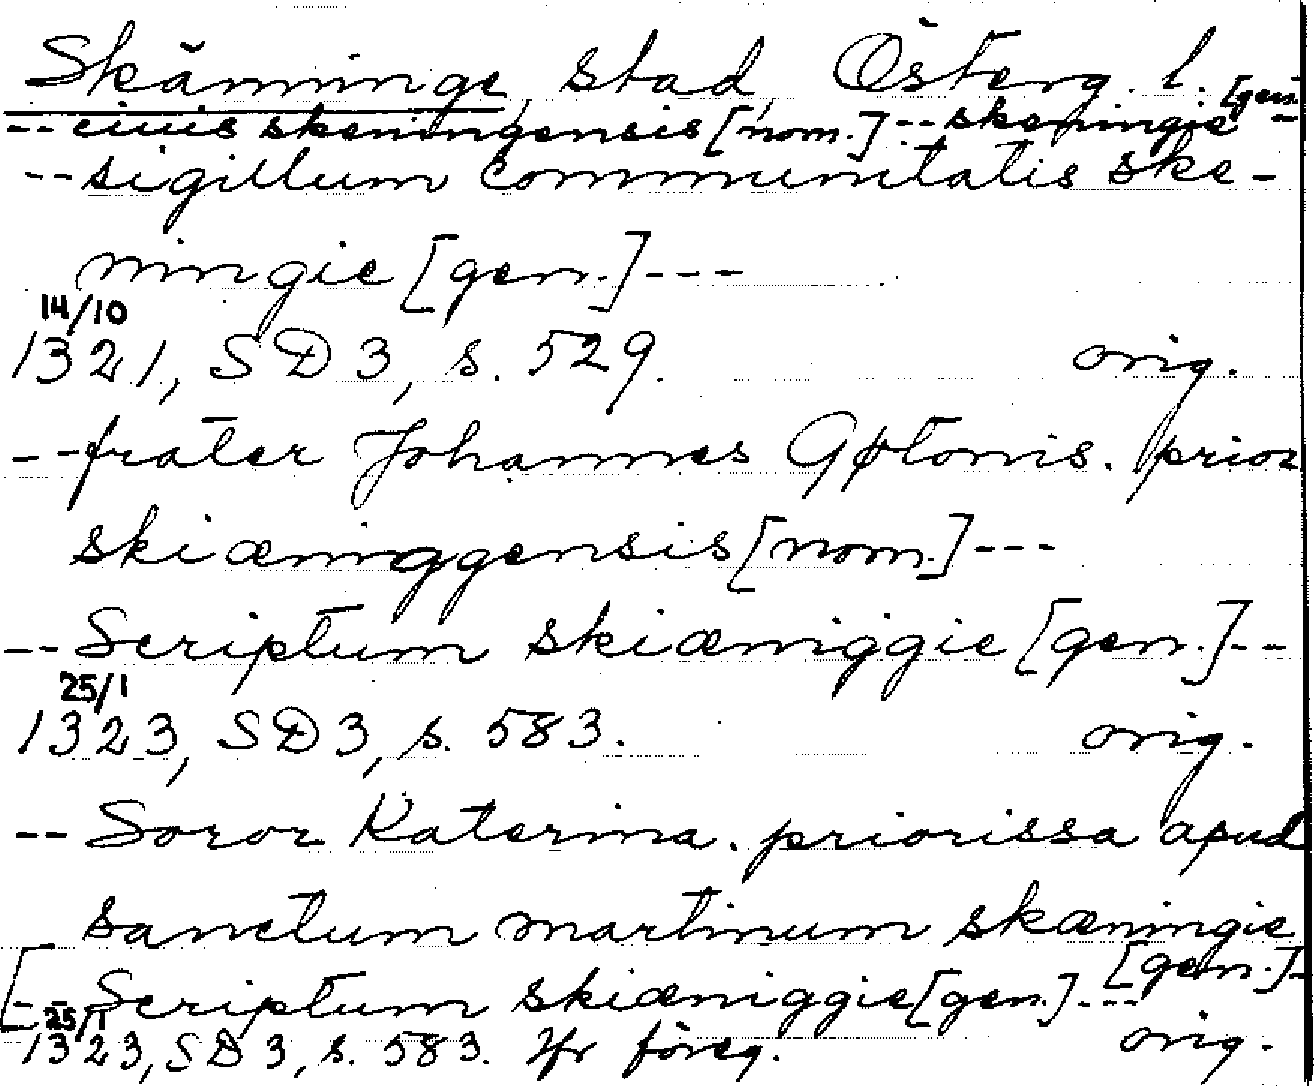 Skänninge, stad, Österg. l.
-- ciuis skeningensis [nom.] -- skeningie [gen.] --
-- sigillum communitatis ske-
ningie [gen.] ---
14/10
1321, SD 3, s. 529. orig.
-- frater Johannes Gøtonis. prior
skiæniggensis [nom.] ---
-- Scriptum skiæniggie [gen.] --
25/1
1323, SD 3, s. 583. orig.
-- Soror Katerina. priorissa apud
sanctum martinum skæningie
[gen.] --
[-- Scriptum skiæniggie [gen.] ---
25/1
1323, SD 3, s. 583. Jfr föreg. orig.